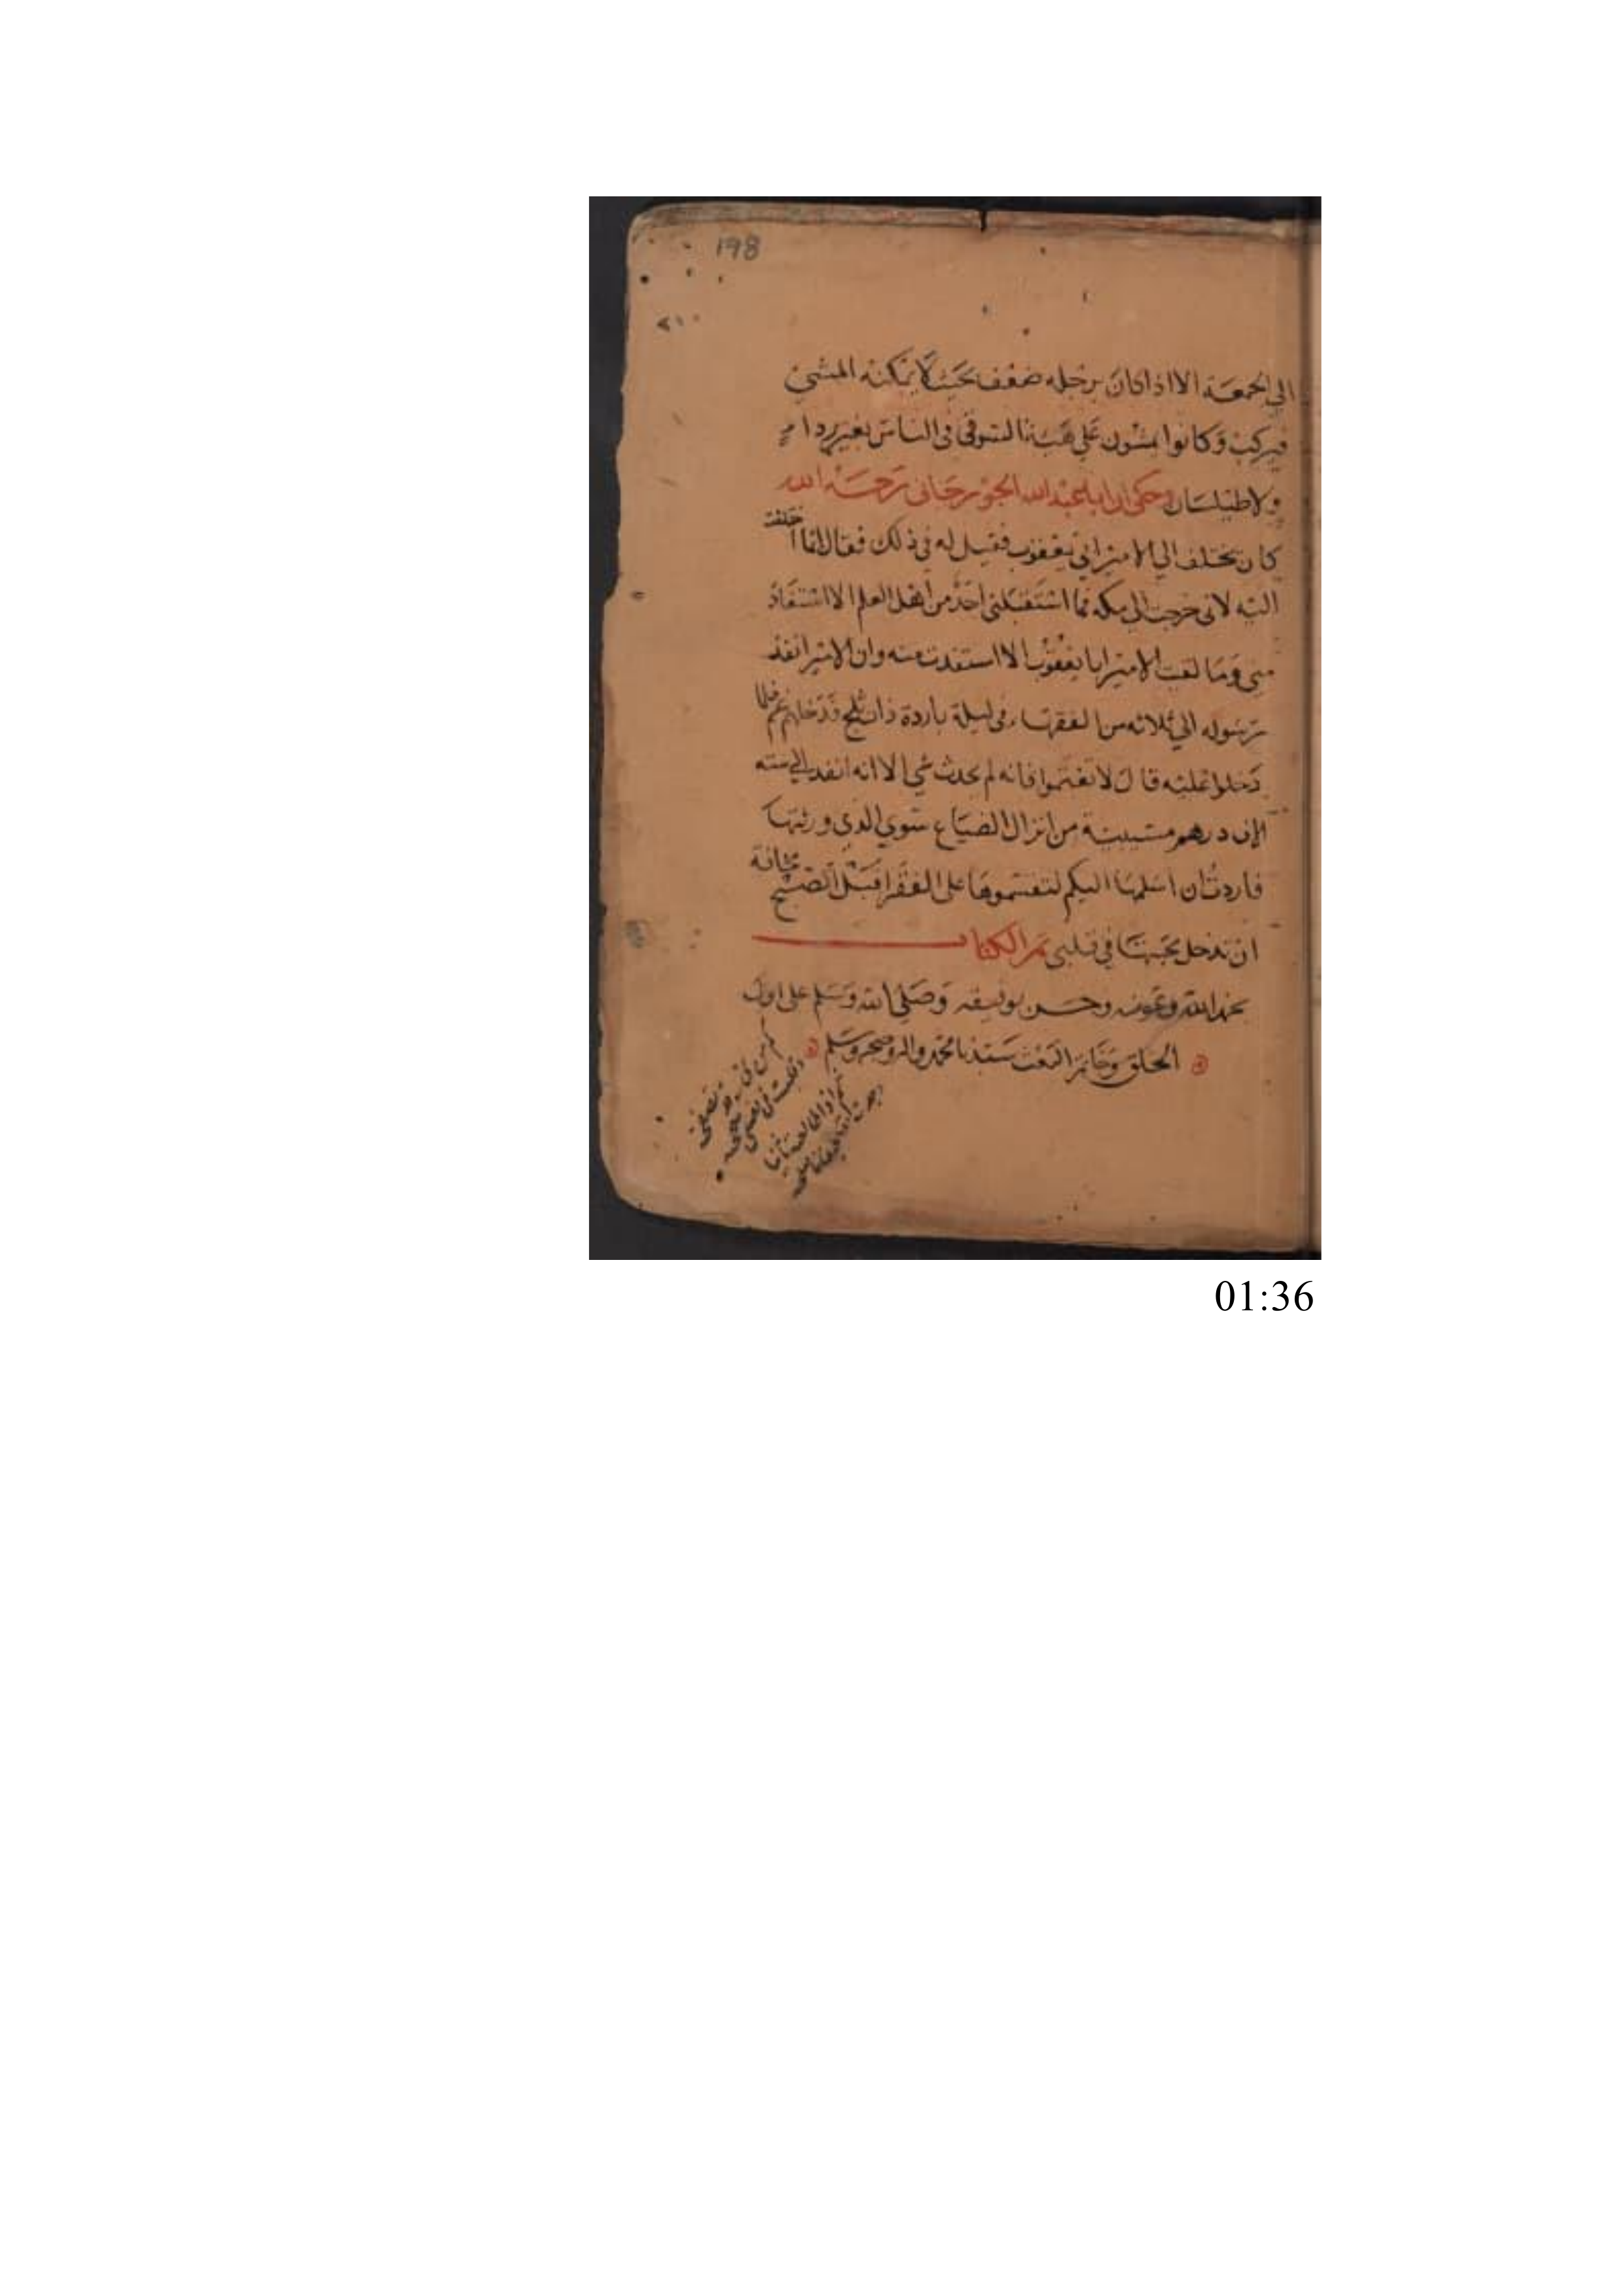 198
٢١٠
الي الجمعة الا اذا كان برجله ضعف بحيث لا يمكنه المشي
فيركب وكانوا يمشون علي هيئة السوقي في الناس بغير ردا
ولا طيلسان وحكى ان ابا عبد الله الجوزجاني رحمة الله
كان يختلف الي الامير ابي يعقوب فقيل له في ذلك فقال انما اختلفت
اليه لاني خرجت الي مكه فما استقبلني احد من اهل العلم الا استفاد
مني وما لقيت الامير ابا يعقوب الا استفدت منه وان الامير انفذ
رسوله الي ثلاثه من الفقهاء في ليلة باردة ذات ثلج فدخلهم غم فلما
دخلوا عليه قال لا تغتموا فانه لم يحدث شي الا انه انفد الي سته
الاف درهم من انزال الضياع سوي الذي ورثتها
فاردت ان اسلمها اليكم لتقسموها على الفقرا قبل الصبح مخافة
ان تدخل محبتها في قلبي تم الكتاب
بحمد الله وعونه وحسن توفيقه وصلي الله وسلم على اول
الخلق وخاتم البعث سيدنا محمد واله وصحبه وسلم
01:36